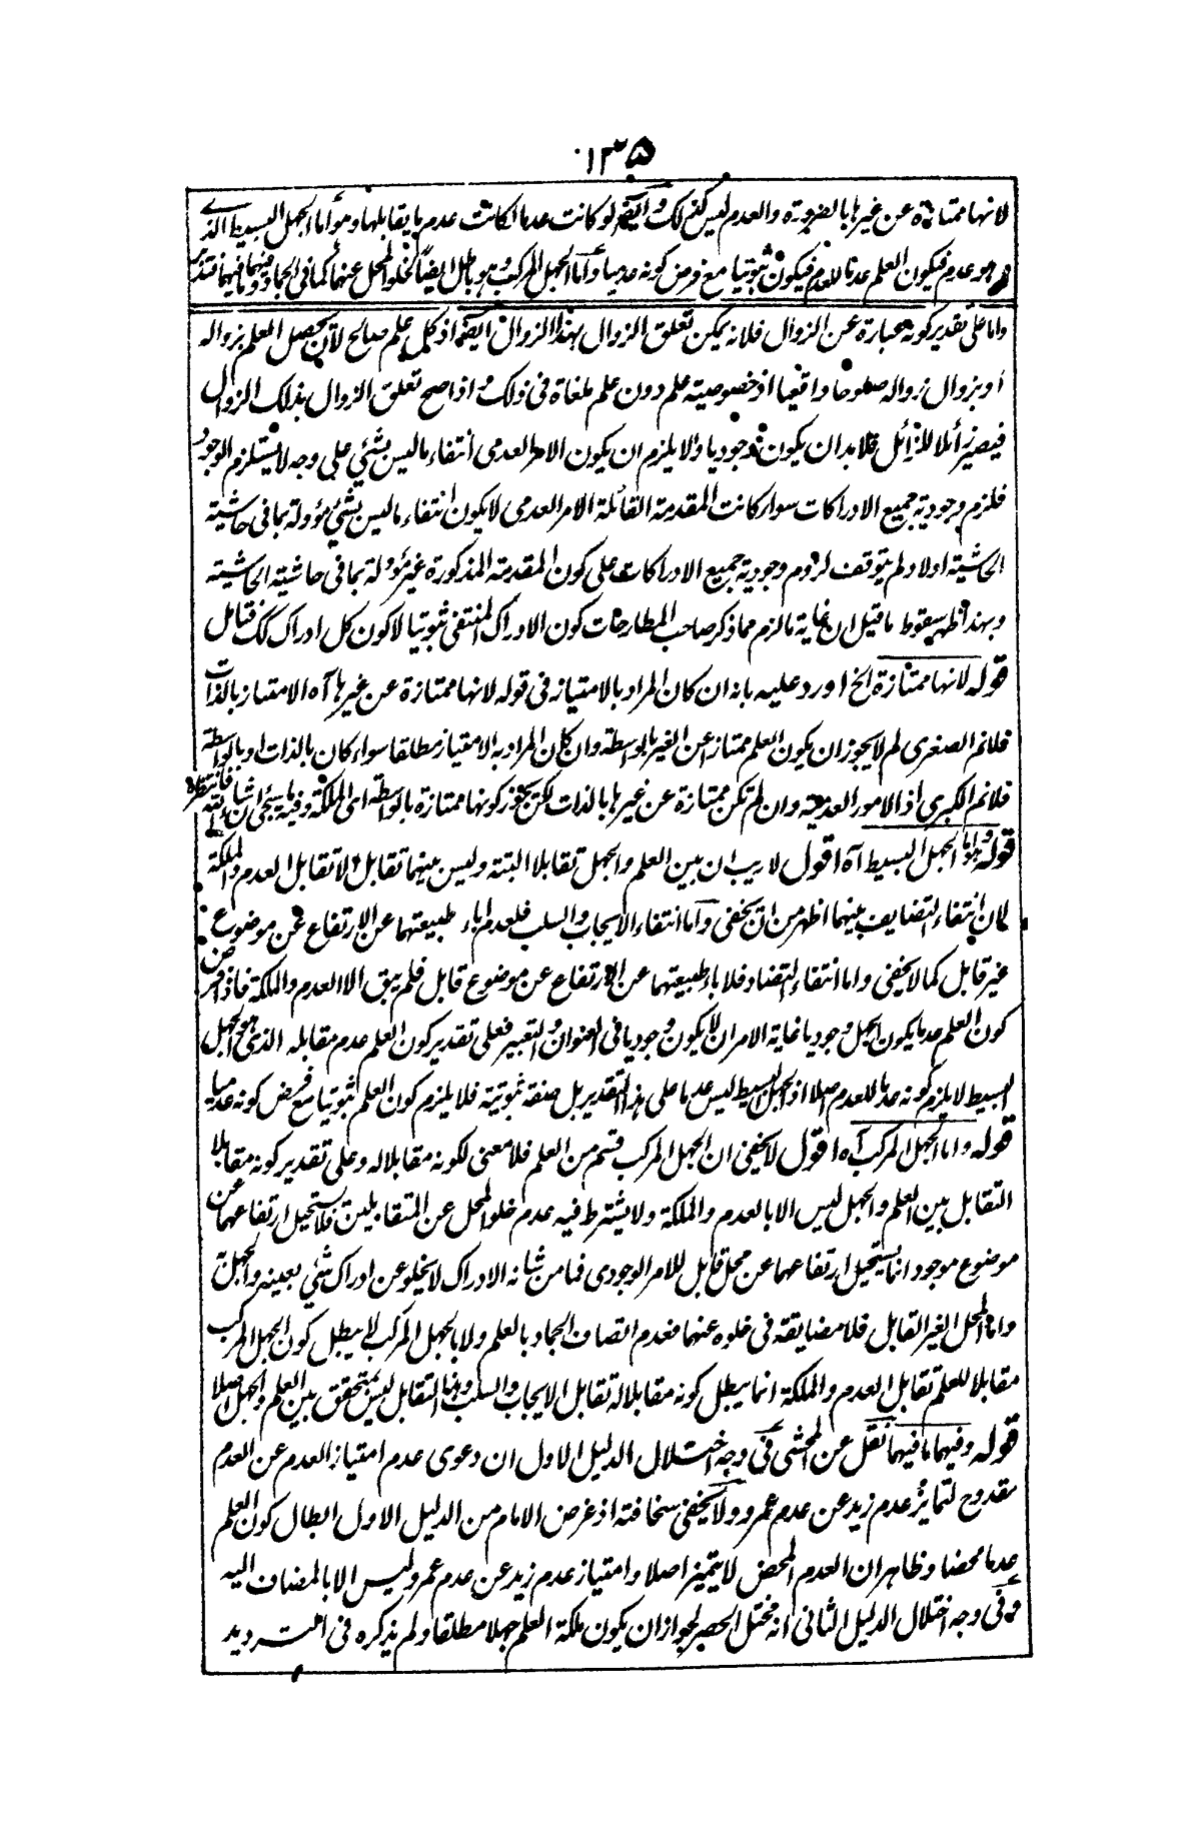 ١٣٥
لانها ممتازة عن غيرها بالضرورة والعدم ليس كذلك وايضا لو كانت عدما لكانت عدم ما يقابلها وهو اما الجهل البسيط الذى
هو عدم فيكون العلم عدما للعدم فيكون ثبوتيا مع فرض كونه عدميا واما الجهل المركب وهو باطل ايضا لخلو المحل عنهما كما فى الجماد وفيهما ما فيهما فتدبر
واما على تقدير كونه عبارة عن الزوال فلانه يمكن تعلق الزوال بهذا الزوال ايضا اذ كل علم صالح لان يحصل العلم بزواله
او بزوال زواله صلوحا واقعيا اذ خصوصية علم دون علم ملغاة فى ذلك و اذا صح تعلق الزوال بذلك الزوال
فيصير زائلا للزائل فلا بد ان يكون وجوديا والا يلزم ان يكون الامر العدمى انتفاء ما ليس بشئ على وجه لا يستلزم الوجود
فلزم وجودية جميع الادراكات سواء كانت المقدمة القائلة الامر العدمى لا يكون انتفاء ما ليس بشئ مؤولة بما فى حاشية
الحاشية اولا ولم يتوقف لزوم وجودية جميع الادراكات على كون المقدمة المذكورة غير مؤولة بما فى حاشية الحاشية
وبهذا ظهر سقوط ما قيل ان غاية ما لزم مما ذكر صاحب المطارحات كون الادراك المنتفى ثبوتيا لا كون كل ادراك كك فتامل
قوله لانها ممتازة الخ اورد عليه بانه ان كان المراد بالامتياز فى قوله لانها ممتازة عن غيرها آه الامتياز بالذات
فلانم الصغرى لم لا يجوز ان يكون العلم ممتازا عن الغير بالواسطة وان كان المراد به الامتياز مطلقا سواء كان بالذات او بالواسطة
فلانم الكبرى اذ الامور العدمية وان لم تكن ممتازة عن غيرها بالذات لكن يجوز كونها ممتازة بالواسطة اى الملكة وفيه ما سيجئ ان شاء الله فانتظره
قوله وهو اما الجهل البسيط آه اقول لا ريب ان بين العلم والجهل تقابلا البتة وليس بينهما تقابل الا تقابل العدم والملكة
لان انتفاء التضايف بينهما اظهر من ان يخفى واما انتفاء الايجاب والسلب فلعدم اباء طبيعتهما عن الارتفاع عن موضوع
غير قابل كما لا يخفى واما انتفاء التضاد فلاباء طبيعتهما عن الارتفاع عن موضوع قابل فلم يبق الا العدم والملكة فاذا فرض
كون العلم عدما يكون الجهل وجوديا غاية الامر ان لا يكون وجوديا فى العنوان والتعبير فعلى تقدير كون العلم عدم مقابله الذى هو الجهل
البسيط لا يلزم كونه عدما للعدم اصلا اذ الجهل البسيط ليس عدما على هذا التقدير بل صفة ثبوتية فلا يلزم كون العلم ثبوتيا مع فرض كونه عدميا
قوله واما الجهل المركب آه اقول لا يخفى ان الجهل المركب قسم من العلم فلا معنى لكونه مقابلا له وعلى تقدير كونه مقابلا
التقابل بين العلم والجهل ليس الا بالعدم والملكة ولا يشترط فيه عدم خلو المحل عن المتقابلين فلا يستحيل ارتفاعهما عن
موضوع موجود انما يستحيل ارتفاعهما عن محل قابل للامر الوجودى فما من شانه الادراك لا يخلو عن ادراك شئ بعينه والجهل
واما المحل الغير القابل فلا مضايقة فى خلوه عنهما فعدم اتصاف الجماد بالعلم ولا بالجهل المركب لا يبطل كون الجهل المركب
مقابلا للعلم تقابل العدم والملكة انما يبطل كونه مقابلا له تقابل الايجاب والسلب وهذا التقابل ليس بمتحقق بين العلم والجهل اصلا
قوله وفيهما ما فيهما نقل عن المحشى فى وجه اختلال الدليل الاول ان دعوى عدم امتياز العدم عن العدم
مقدوح لتمايز عدم زيد عن عدم عمرو ولا يخفى سخافته اذ غرض الامام من الدليل الاول ابطال كون العلم
عدما محضا وظاهر ان العدم المحض لا يتميز اصلا وامتياز عدم زيد عن عدم عمرو ليس الا بالمضاف اليه
وفى وجه اختلال الدليل الثانى انه مختل الحصر لجواز ان يكون ملكة العلم جهلا مطلقا ولم يذكره فى الترديد